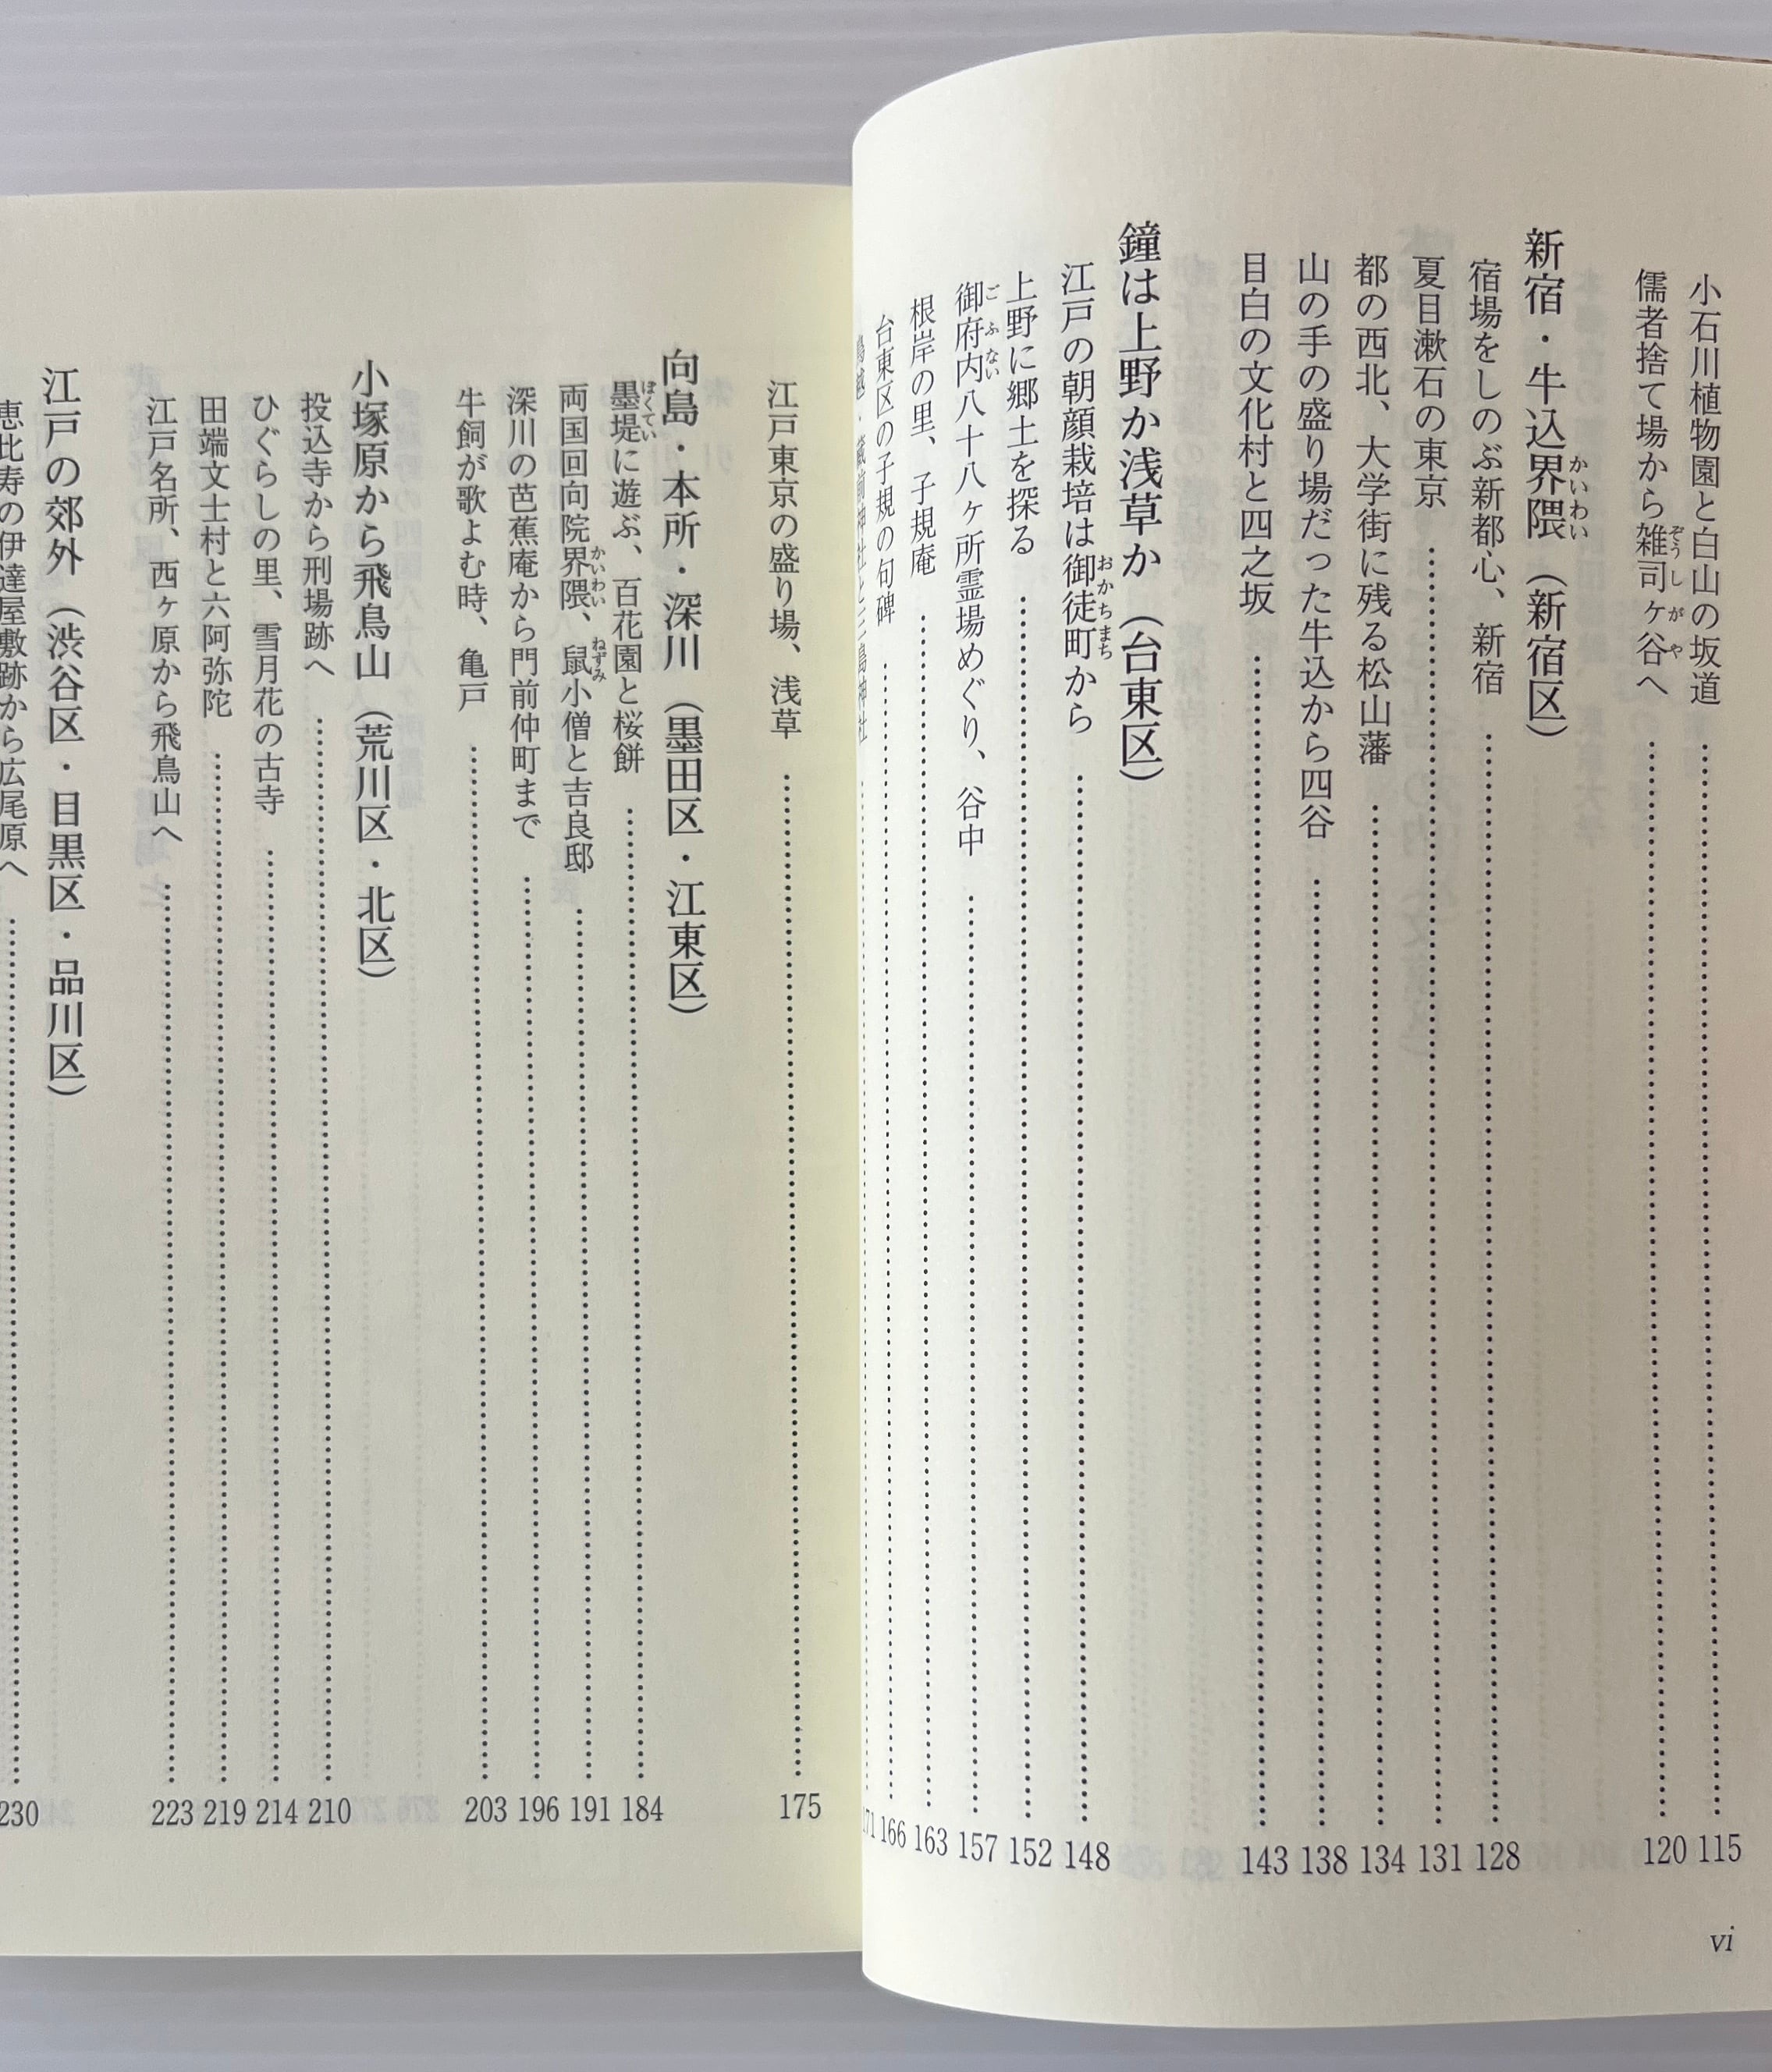 小石川植物園と白山の坂道 115
儒者捨て場から雑司ヶ谷へ 120
ぞうしがや
新宿・牛込界隈（新宿区）
かいわい
宿場をしのぶ新都心、新宿 128
夏目漱石の東京 131
都の西北、大学街に残る松山藩 134
山の手の盛り場だった牛込から四谷 138
目白の文化村と四之坂 143
鐘は上野か浅草か（台東区）
江戸の朝顔栽培は御徒町から 148
おかちまち
上野に郷土を探る 152
御府内八十八ヶ所霊場めぐり、谷中 157
ごふない
根岸の里、子規庵 163
台東区の子規の句碑 166
vi
江戸東京の盛り場、浅草 175
向島・本所・深川（墨田区・江東区）
墨堤に遊ぶ、百花園と桜餅 184
ぼくてい
両国回向院界隈、鼠小僧と吉良邸 191
かいわい ねずみ
深川の芭蕉庵から門前仲町まで 196
牛飼が歌よむ時、亀戸 203
小塚原から飛鳥山（荒川区・北区）
投込寺から刑場跡へ 210
ひぐらしの里、雪月花の古寺 214
田端文士村と六阿弥陀 219
江戸名所、西ヶ原から飛鳥山へ 223
江戸の郊外（渋谷区・目黒区・品川区）
恵比寿の伊達屋敷跡から広尾原へ 230